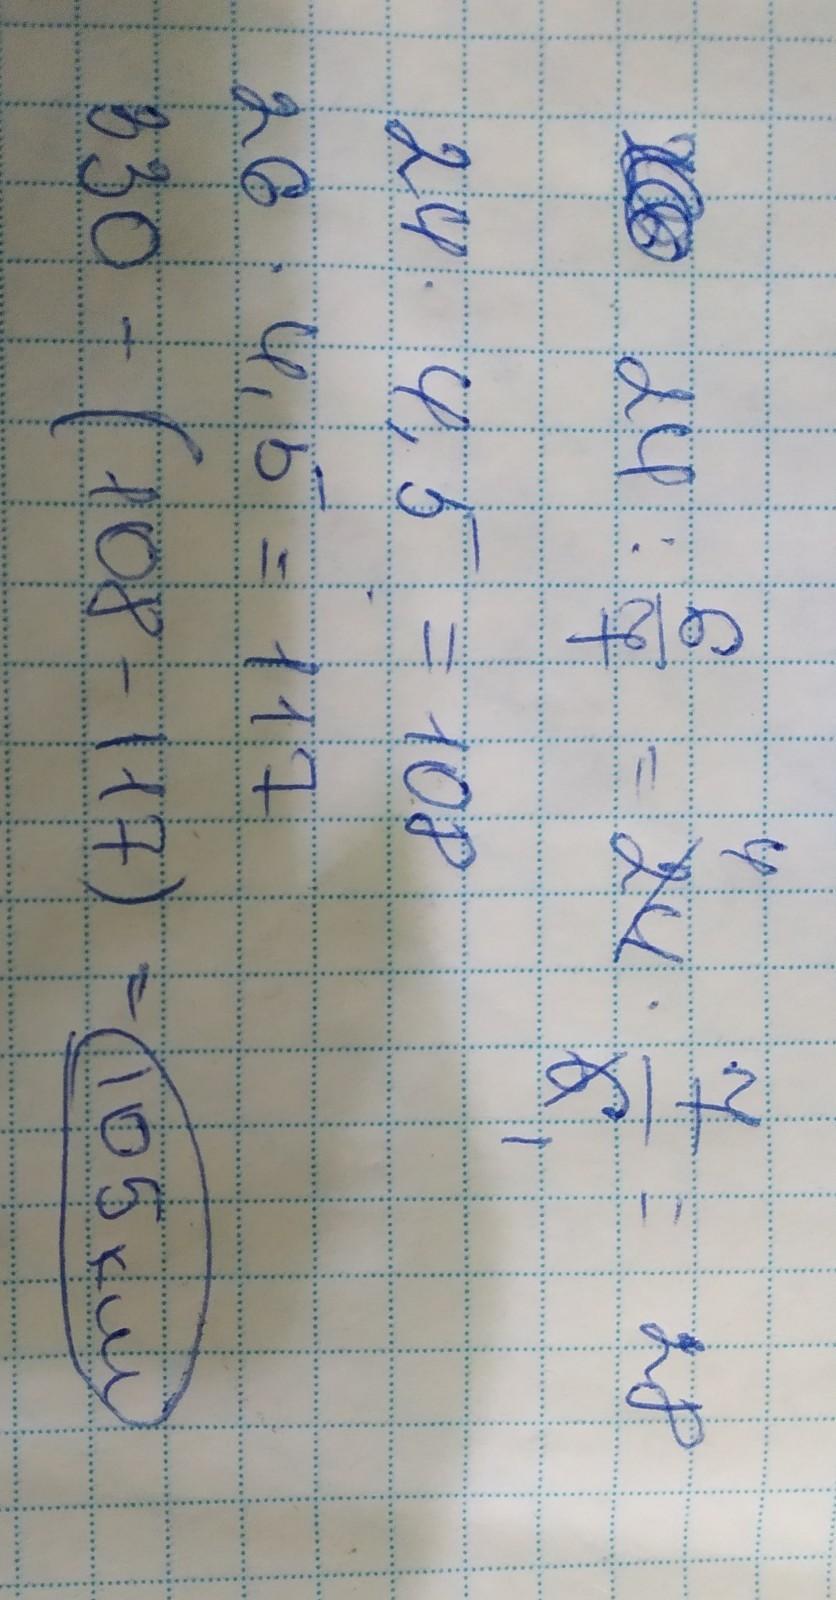 24 : 6/7 = 24 4 · 7/6 1 = 28
24 · 4,5 = 108
26 · 4,5 = 117
330 - (108 - 117) = 105 км